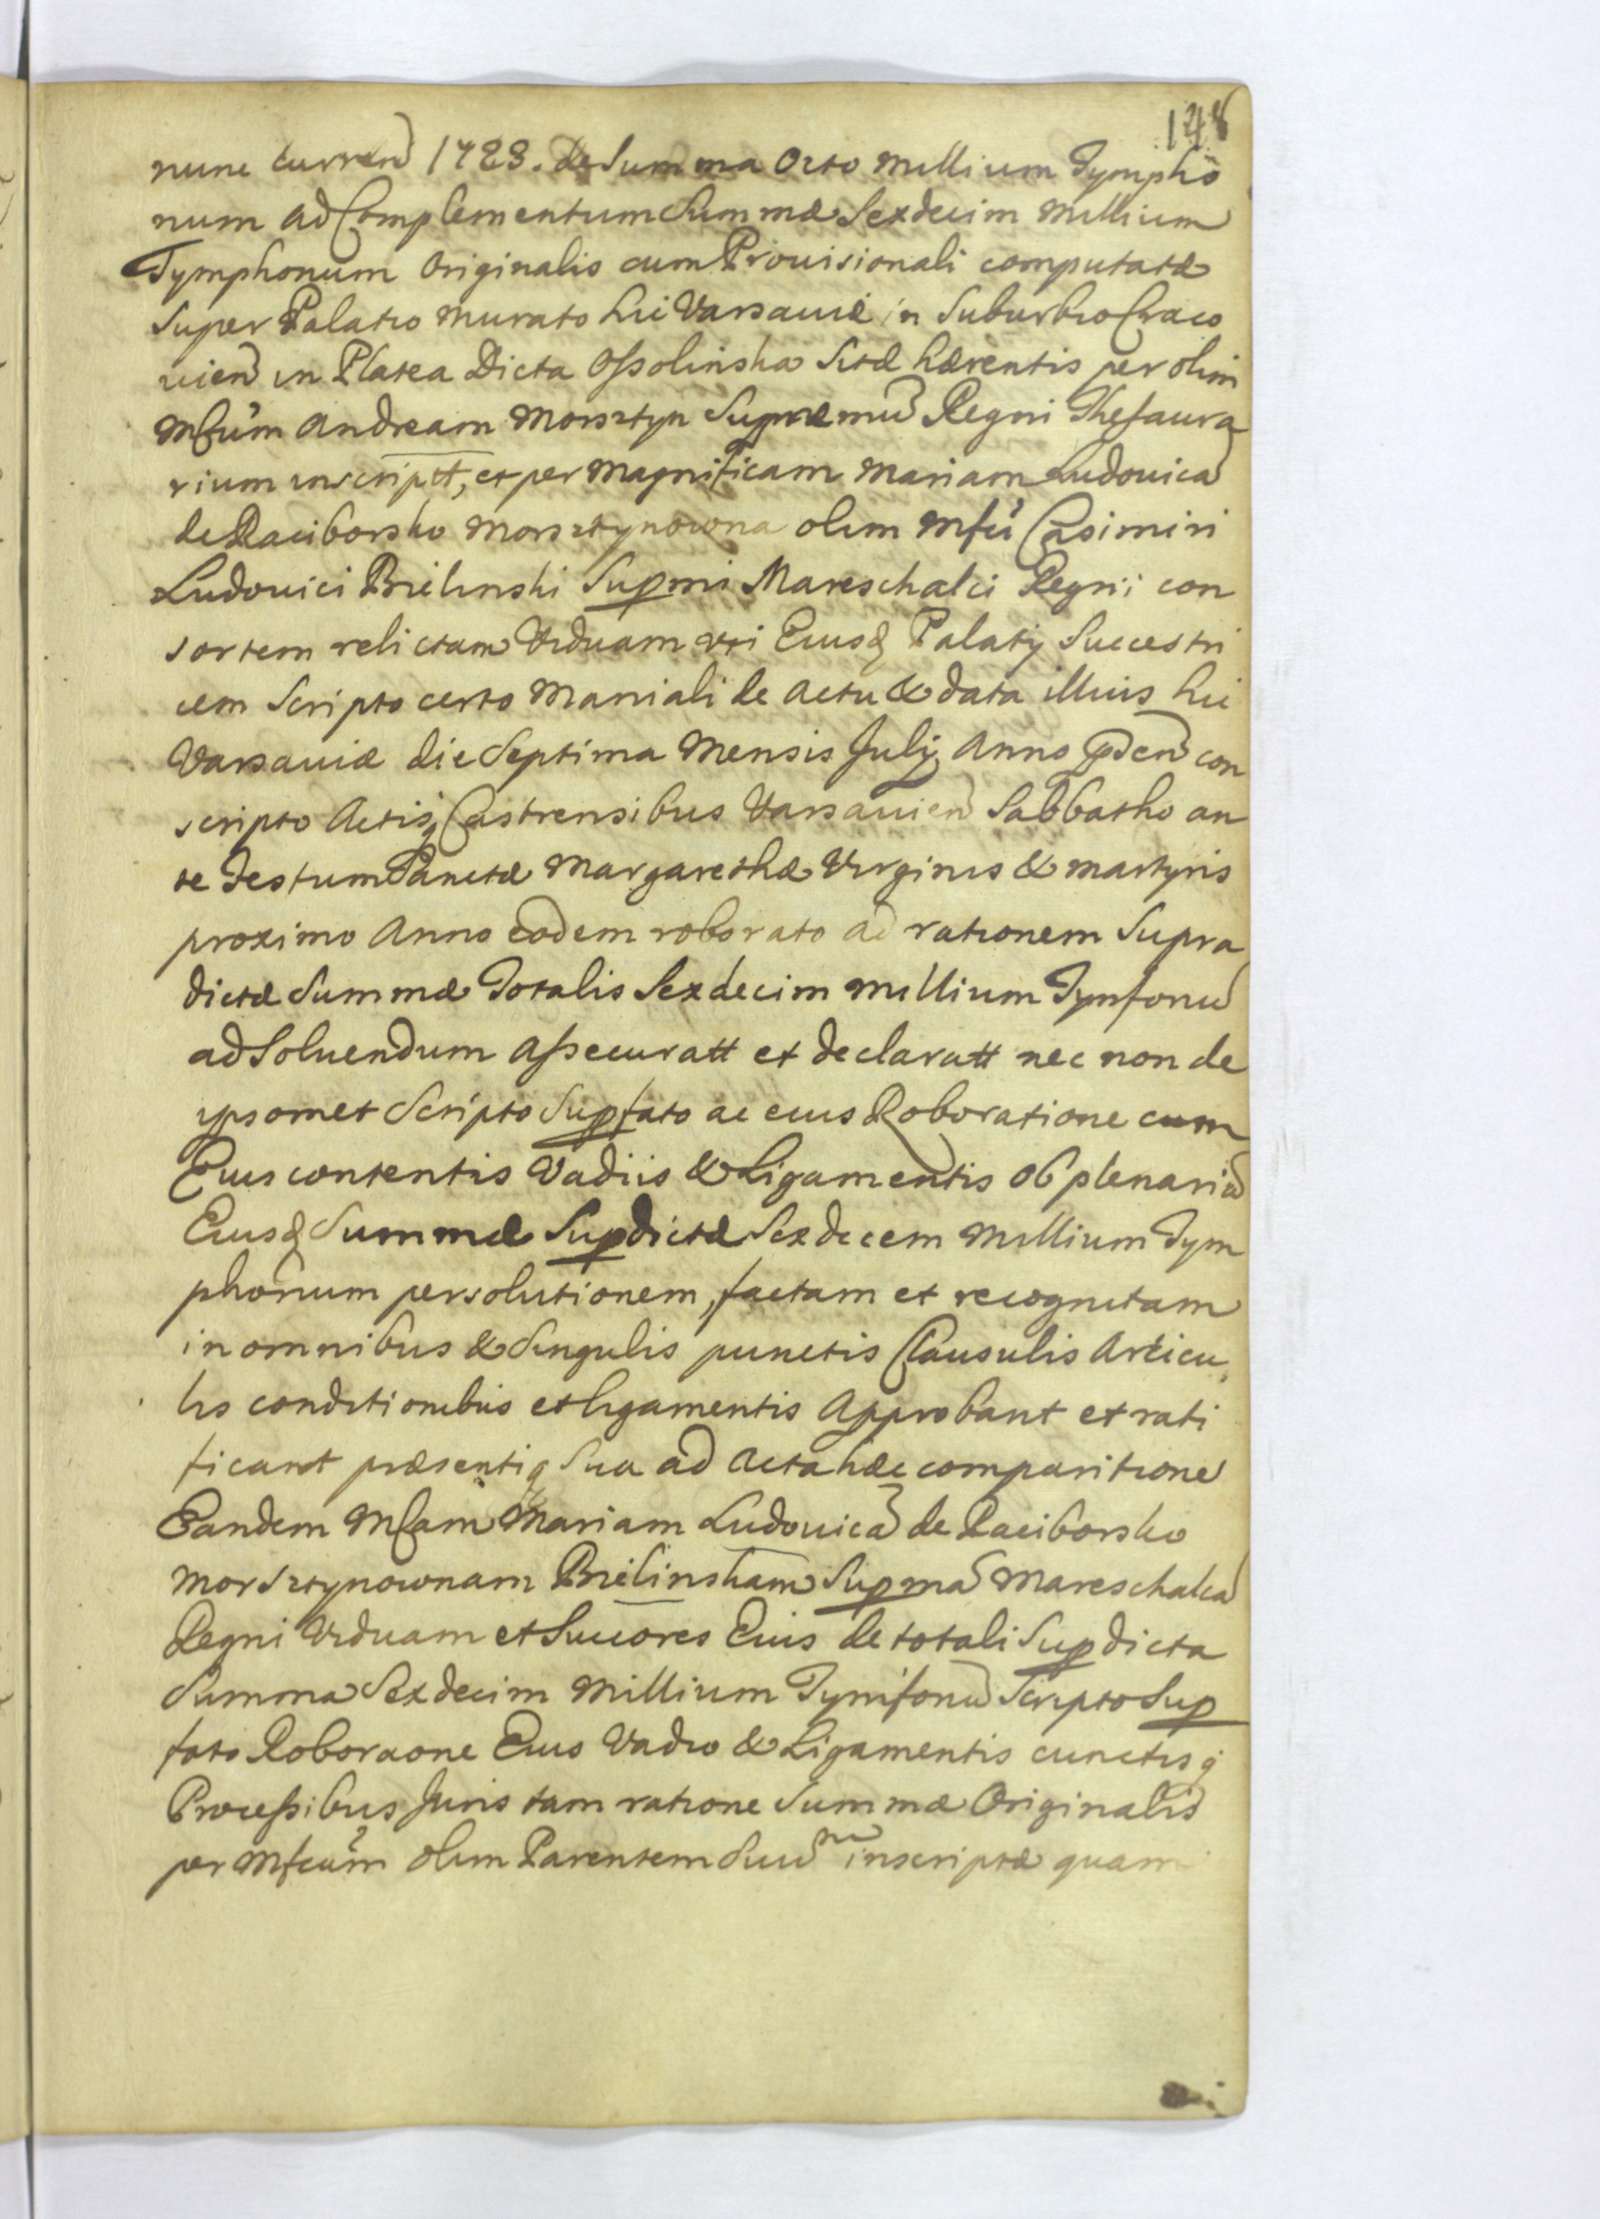 148
nunc Curren 1723. de Summa Octo Millium Tympho
num ad Complementum Summæ Sexdecim Millium
Tymphonum Originalis cum Prouisionali computatæ
Super Palatio Murato hic Varsauiæ in Suburbio Craco
uien in Platea Dicta Ossolinska Sitæ hærentis per olim
Mfcum Andream Morsztyn Supræmū Regni Thesaura
rium inscriptt, et per Magnificam Mariam Ludouicā
de Raciborsko Morsztynowna olim Mfci Casimiri
Ludouici Bielinski Supmi Mareschalci Regni con
sortem relictam Viduam uti Eiusq Palatij Successtri
cem Scripto certo Manuali de Actu & data illius hic
Varsauiæ die Septima Mensis Julij Anno pden con
scripto Actisq Castrensibus Varsauien Sabbatho an
te Festum Sanctæ Margarethæ Virginis & Martyris
proximo Anno eodem roborato ad rationem Supra
dictæ Summæ Totalis Sexdecim Millium Tymfonū
ad Soluendum assecuratt et declaratt nec non de
ipsomet Scripto Supfato ac eius Roboratione cum
Eius contentis Vadiis & Ligamentis ob plenariā
Eiusq Summæ Supdictæ Sexdecem Millium Tym
phonum persolutionem, factam et recognitam
in omnibus & Singulis punctis Clausulis Articu
lis conditionibus et ligamentis Approbant et rati
ficant præsentiq Sua ad Acta hæc comparitione
Eandem Mfcam Mariam Ludouicā de Raciborsko
Morsztynownam Bielinskam Supmā Mareschalcā
Regni Viduam et Succores Eius de totali Supdicta
Summa Sexdecim Millium Tymfonū Scripto Sup
fato Roboraone Eius Vadio & Ligamentis cunctisq
Processibus Juris tam ratione Summæ Originalis
per Mfcum olim Parentem Suū inscriptæ quam